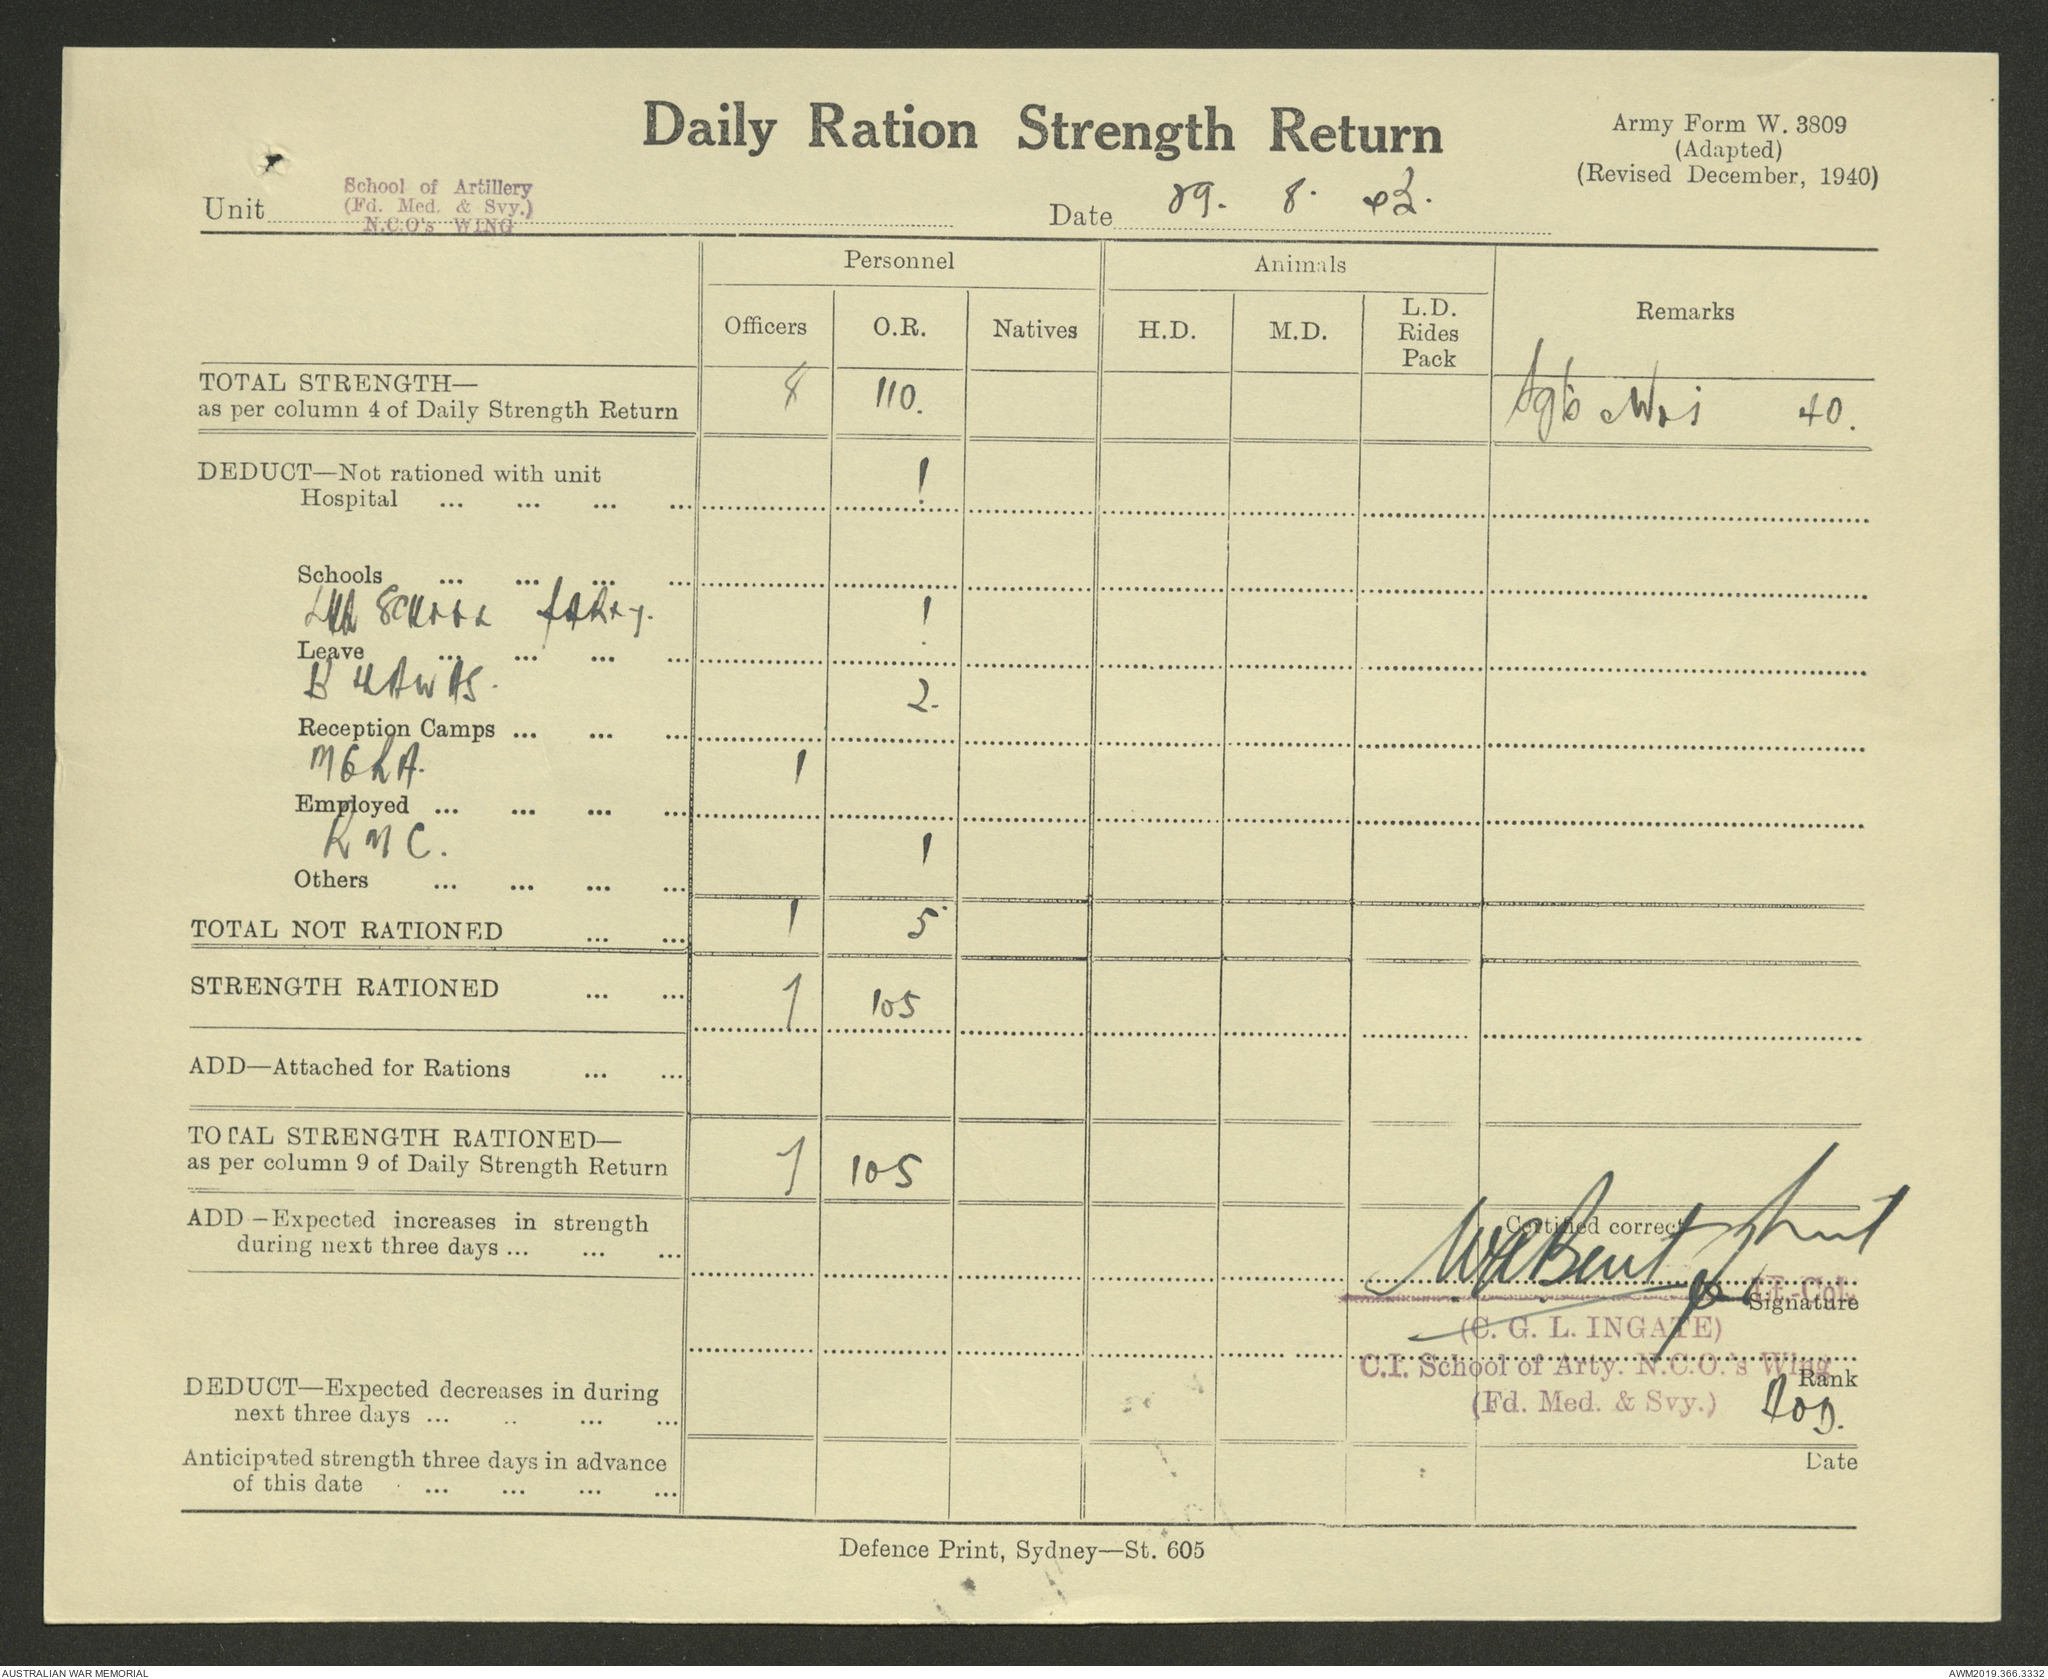 Daily Ration Strength Return
Army Form W. 3809
(Adapted)
(Revised December, 1940)
Unit
School of Artillery
(Fd. Med. & Svy.)
N.C.O's WING
Date 29. 8. 43.
Personnel
Animals
Remarks
Officers
O.R.
Natives
H.D.
M.D.
L.D.
Rides
Pack
TOTAL STRENGTH—
as per column 4 of Daily Strength Return 8 110. 40.
DEDUCT—Not rationed with unit
Hospital ... ... ... ... 1
Schools ... ... ... ...
School 1
Leave ... ... ... ...
AWAS. 2.
Reception Camps ... ... ...
1
Employed ... ... ... ...
R M C. 1
Others ... ... ... ...
TOTAL NOT RATIONED ... ... 1 5
STRENGTH RATIONED ... ... 7 105
ADD—Attached for Rations ... ...
TOTAL STRENGTH RATIONED—
as per column 9 of Daily Strength Return 7 105
ADD—Expected increases in strength
during next three days ... ... ...
Certified correct
Lt.-Col.
Signature
(C. G. L. INGATE)
C.I. School of Arty. N.C.O.'s Wing
Rank
(Fd. Med. & Svy.)
DEDUCT—Expected decreases in during
next three days ... .. ... ...
Anticipated strength three days in advance
of this date ... ... ... ...
Date
Defence Print, Sydney—St. 605
AUSTRALIAN WAR MEMORIAL
AWM2019.366.3332